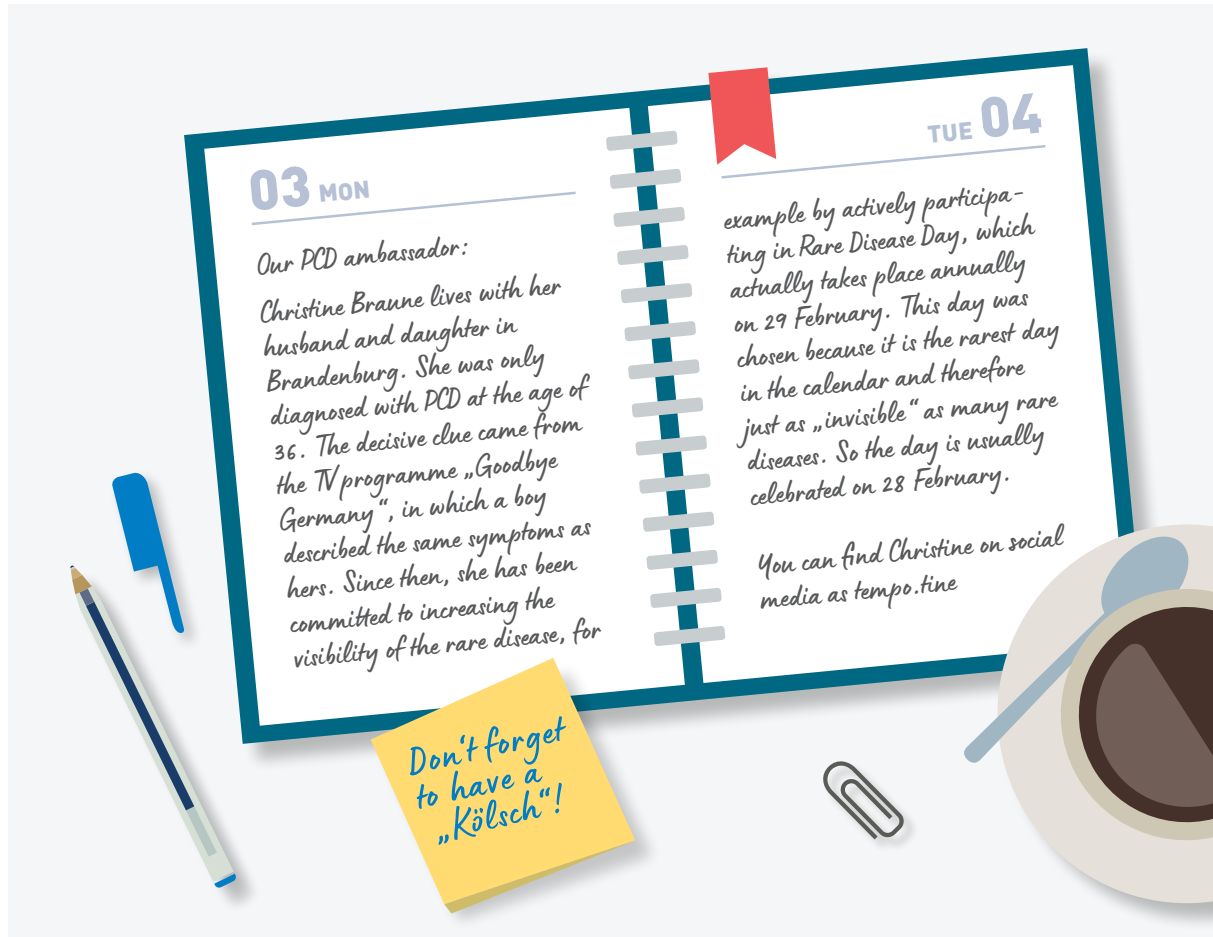 03 MON
Our PCD ambassador:
Christine Braune lives with her
husband and daughter in
Brandenburg. She was only
diagnosed with PCD at the age of
36. The decisive clue came from
the TV programme „Goodbye
Germany“, in which a boy
described the same symptoms as
hers. Since then, she has been
committed to increasing the
visibility of the rare disease, for
TUE 04
example by actively participa-
ting in Rare Disease Day, which
actually takes place annually
on 29 February. This day was
chosen because it is the rarest day
in the calendar and therefore
just as „invisible“ as many rare
diseases. So the day is usually
celebrated on 28 February.
You can find Christine on social
media as tempo.tine
Don‘t forget
to have a
„Kölsch“!